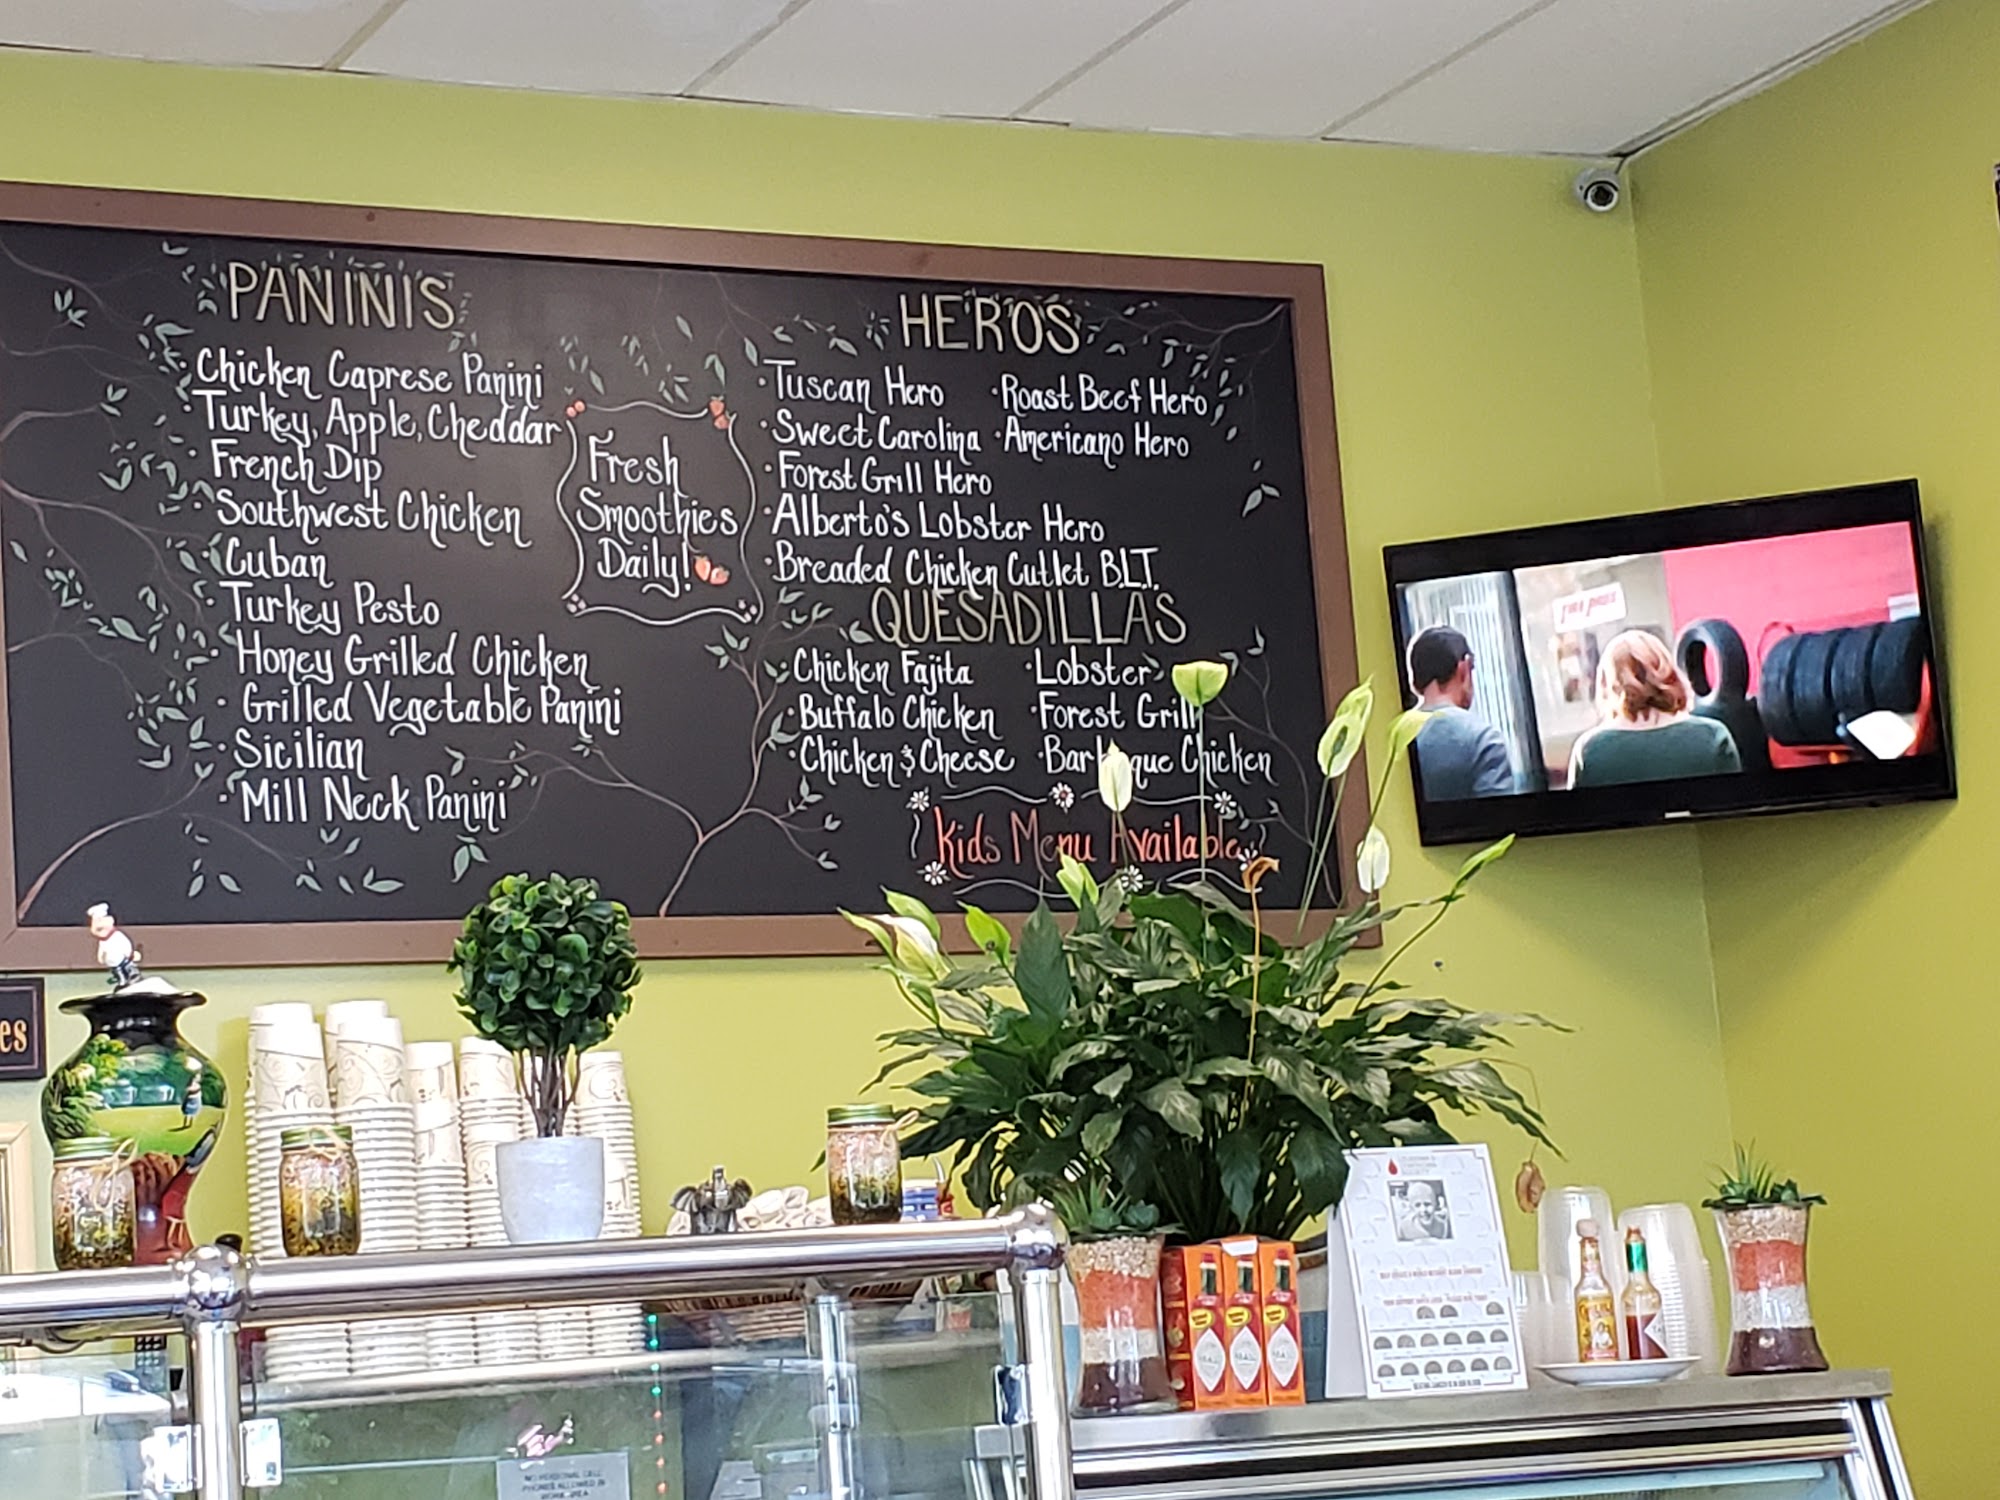 PANINIS
·Chicken Caprese Panini
·Turkey, Apple, Cheddar
·French Dip
·Southwest Chicken
·Cuban
·Turkey Pesto
·Honey Grilled Chicken
·Grilled Vegetable Panini
·Sicilian
·Mill Neck Panini
Fresh
Smoothies
Daily!
HEROS
·Tuscan Hero ·Roast Beef Hero
·Sweet Carolina ·Americano Hero
·Forest Grill Hero
·Alberto's Lobster Hero
·Breaded Chicken Cutlet B.L.T.
QUESADILLAS
·Chicken Fajita ·Lobster
·Buffalo Chicken ·Forest Grill
·Chicken & Cheese ·Barbeque Chicken
Kids Menu Available
es
LEUKEMIA &
LYMPHOMA
SOCIETY
NO PERSONAL CELL
PHONES ALLOWED IN
WORK AREA